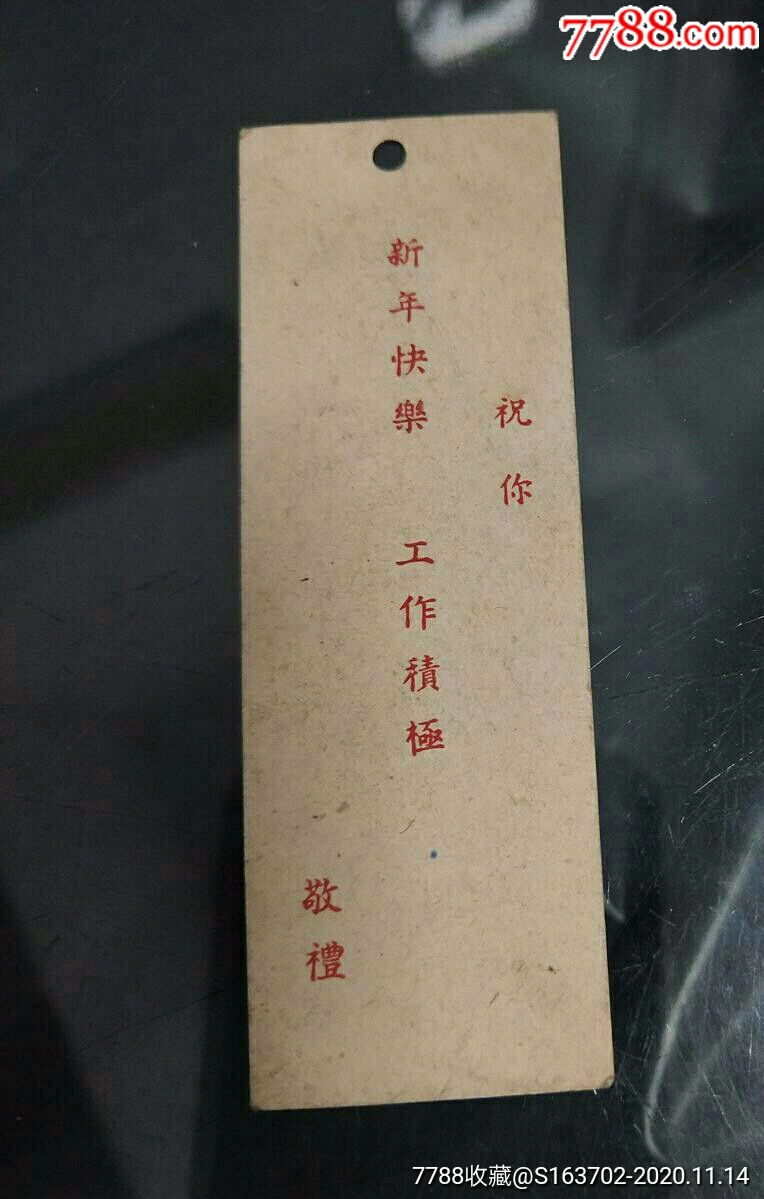 7788.com
祝你
新年快樂 工作積極
敬禮
7788收藏@S163702-2020.11.14